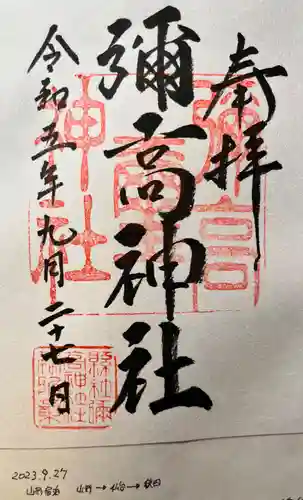 奉拝
彌高神社
令和五年九月二十七日
彌高神社
2023.9.27
山形 → 仙台 → 秋田